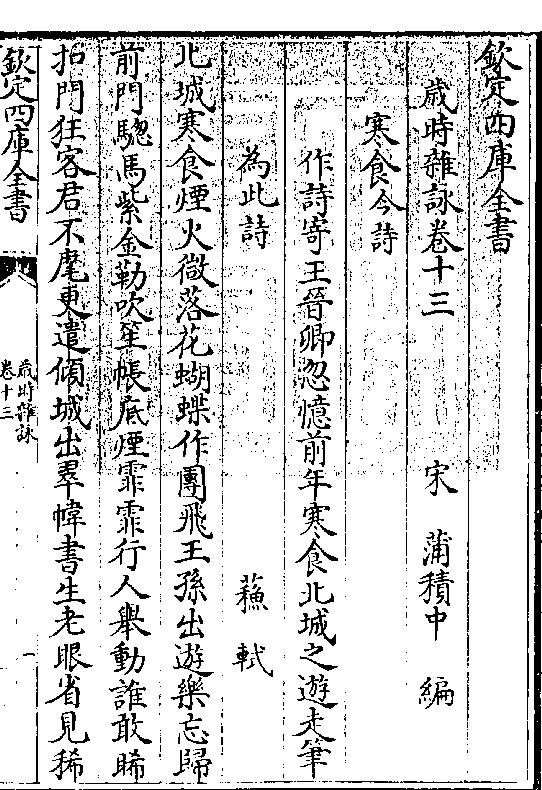 欽定四庫全書
歲時雜詠卷十三 宋 蒲積中 編
寒食今詩
作詩寄王晉卿忽憶前年寒食北城之遊走筆
為此詩 蘓軾
北城寒食煙火微落花蝴蝶作團飛王孫出遊樂忘歸
前門驄馬紫金勒吹笙帳底煙霏霏行人舉動誰敢睎
扣門狂客君不麾更遣傾城出翠幃書生老眼省見稀
欽定四庫全書
歲時雜詠
卷十三
一